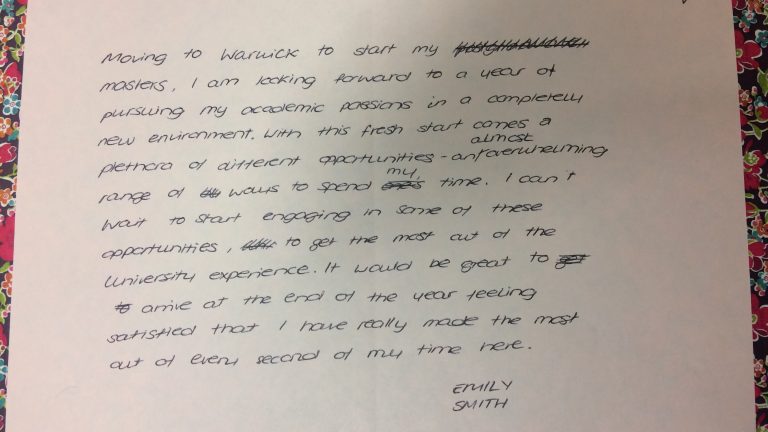 Moving to Warwick to start my
masters, I am looking forward to a year of
pursuing my academic passions in a completely
new environment. With this fresh start comes a
almost
plethora of different opportunities - an overwhelming
my
range of ways to spend time. I can't
wait to start engaging in some of these
opportunities, to get the most out of the
University experience. It would be great to
arrive at the end of the year feeling
satisfied that I have really made the most
out of every second of my time here.
EMILY
SMITH